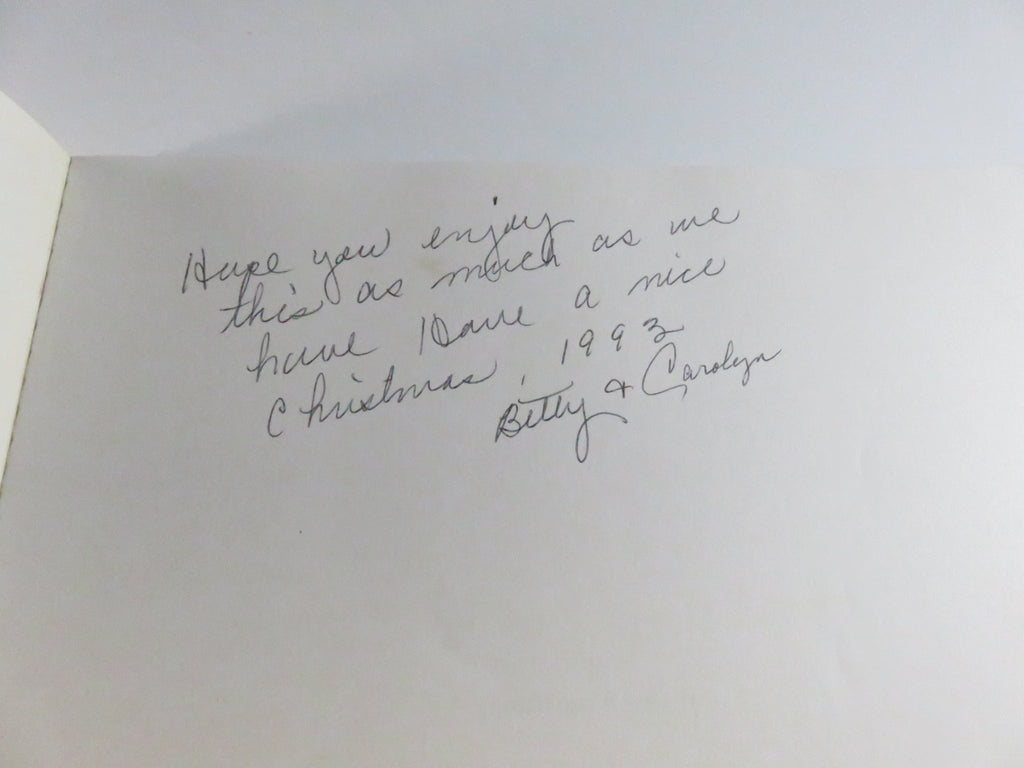 Hope you enjoy
this as much as we
have Have a nice
Christmas, 1993
Betty & Carolyn